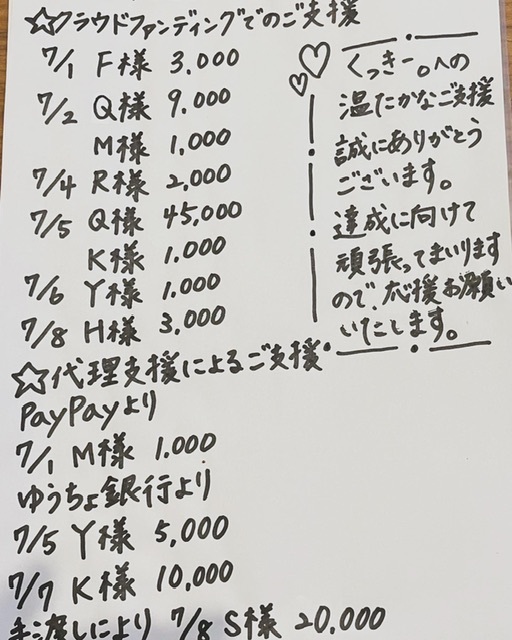 ☆クラウドファンディングでのご支援
7/1 F様 3,000
7/2 Q様 9,000
M様 1,000
7/4 R様 2,000
7/5 Q様 45,000
K様 1,000
7/6 Y様 1,000
7/8 H様 3,000
くっきー。への
温たかなご支援
誠にありがとう
ございます。
達成に向けて
頑張ってまいります
ので、応援お願い
いたします。
☆代理支援によるご支援
PayPayより
7/1 M様 1,000
ゆうちょ銀行より
7/5 Y様 5,000
7/7 K様 10,000
手渡しにより 7/8 S様 20,000